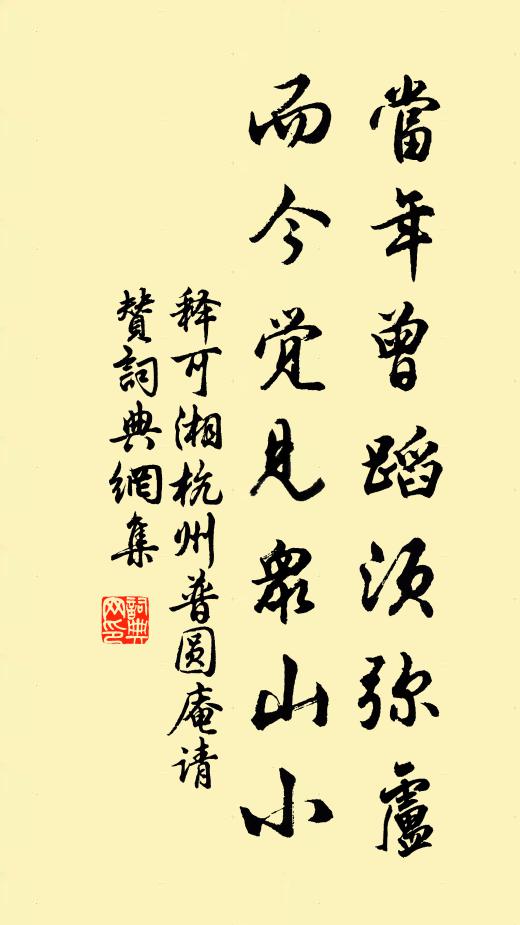 當年曾蹈须弥盧
而今觉見衆山小
释可湘杭州普圆庵请
贊詞典網集
詞典网印